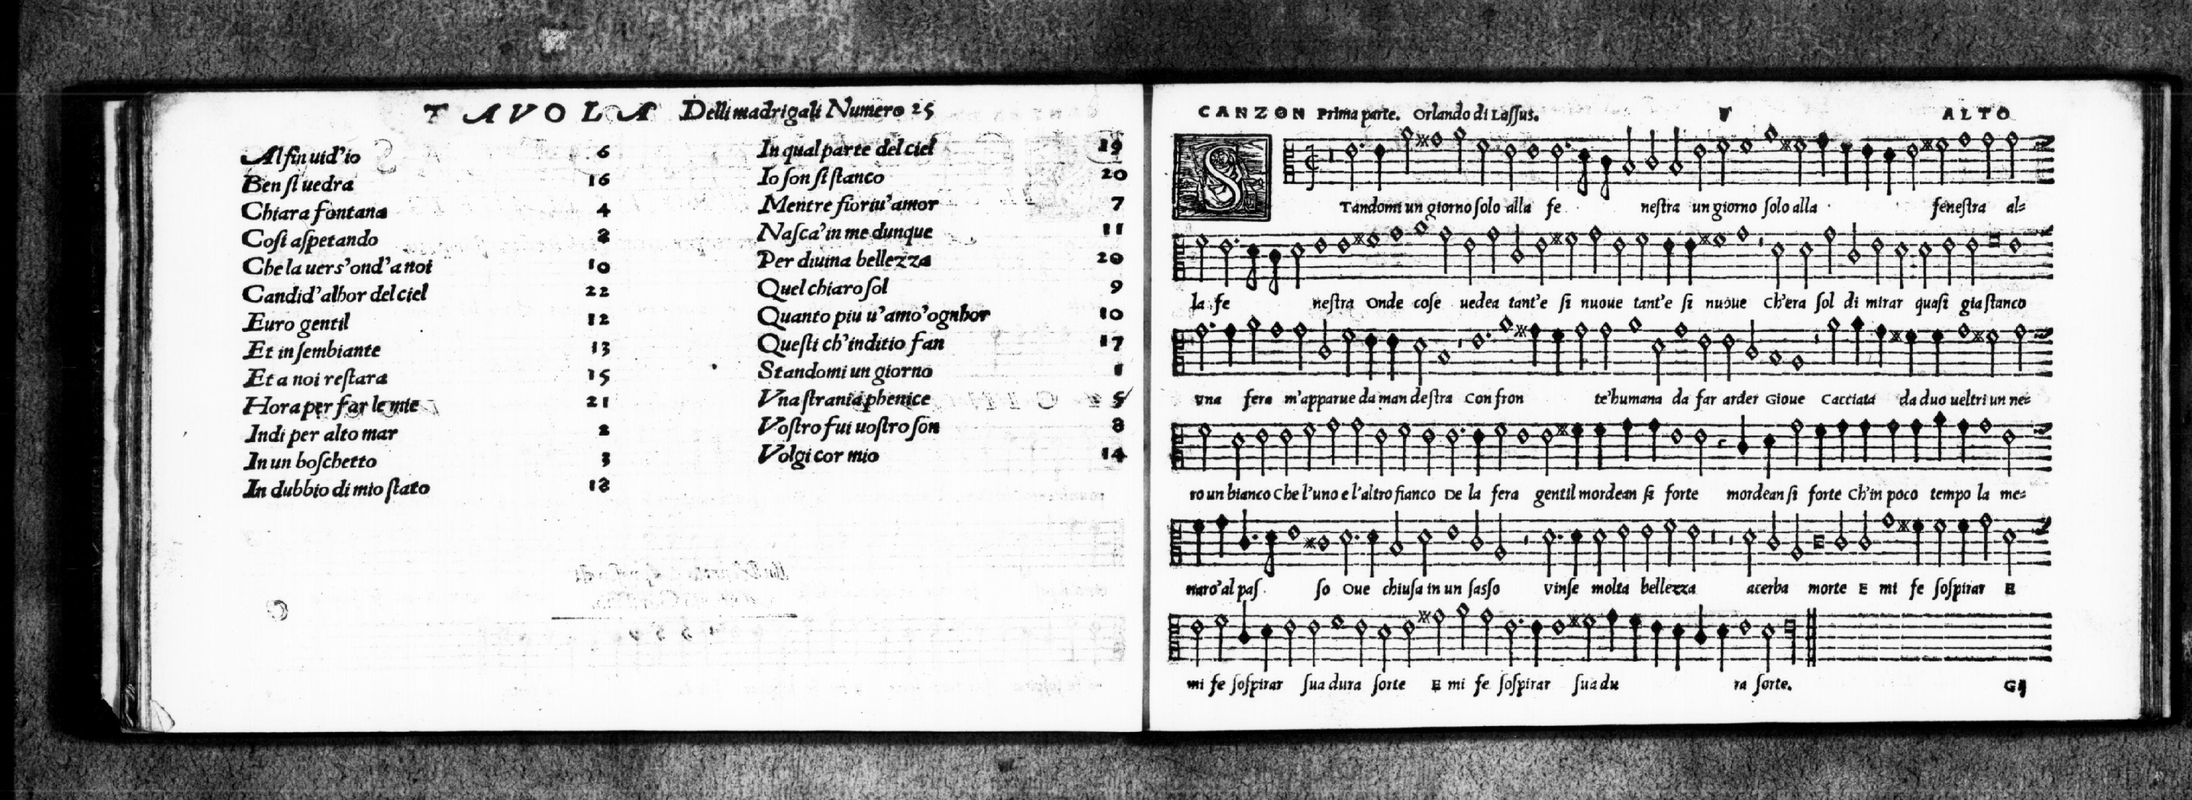 TAVOLA Delli madrigali Numero 25
Al fin uid'io 6
Ben si uedra 16
Chiara fontana 4
Cosi aspetando 8
Che la uers'ond'a noi 10
Candid'albor del ciel 22
Euro gentil 12
Et in sembiante 13
Et a noi restara 15
Hora per far le mie 21
Indi per alto mar 2
In un boschetto 3
In dubbio di mio stato 18
In qual parte del ciel 19
Io son si stanco 20
Mentre fioriu'amor 7
Nasca'in me dunque 11
Per diuina bellezza 20
Quel chiaro sol 9
Quanto piu u'amo'ognhor 10
Questi ch'inditio fan 17
Standomi un giorno 1
Vna strania phenice 5
Vostro fui uostro son 8
Volgi cor mio 14
CANZON Prima parte. Orlando di Lassus. ALTO
STandomi un giorno solo alla fe nestra un giorno solo alla fenestra al-
la fe nestra Onde cose uedea tant'e si nuoue tant'e si nuoue Ch'era sol di mirar quasi gia stanco
Vna fera m'apparue da man destra Con fron te'humana da far arder Gioue Cacciata da duo ueltri un ne-
ro un bianco Che l'uno e l'altro fianco De la fera gentil mordean si forte mordean si forte Ch'in poco tempo la me-
naro'al pas so Oue chiusa in un sasso Vinse molta bellezza acerba morte E mi fe sospirar E
mi fe sospirar sua dura sorte E mi fe sospirar sua du ra sorte.